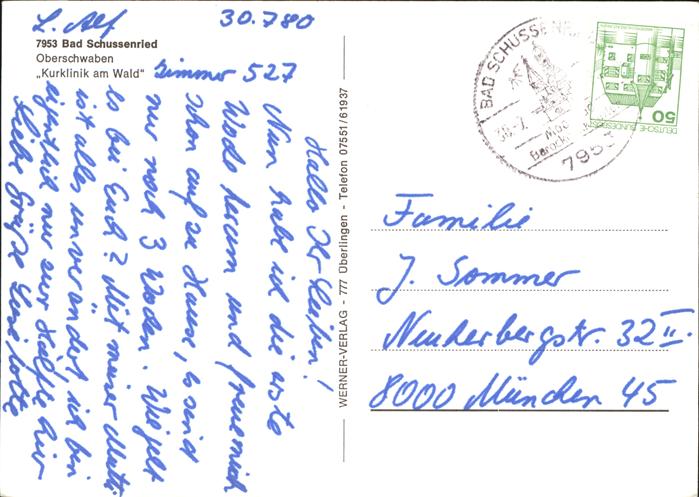 L. Alf
30.7.80
7953 Bad Schussenried
Oberschwaben
„Kurklinik am Wald"
Zimmer 527
Hallo Ihr Lieben!
Nun habe ich die erste
Woche herum und freue mich
schon auf zu Hause, es sind
nur noch 3 Wochen. Wie geht
es bei Euch? Mit meiner Mutti
ist alles unverändert ich bin
eigentlich nur zur Hälfte hier
Liebe Grüße Lieselotte
WERNER-VERLAG - 777 Überlingen - Telefon 07551/61937
BAD SCHUSSENRIED
7953
50
DEUTSCHE BUNDESPOST
Familie
J. Sommer
Neuherbergstr. 32 II.
8000 München 45